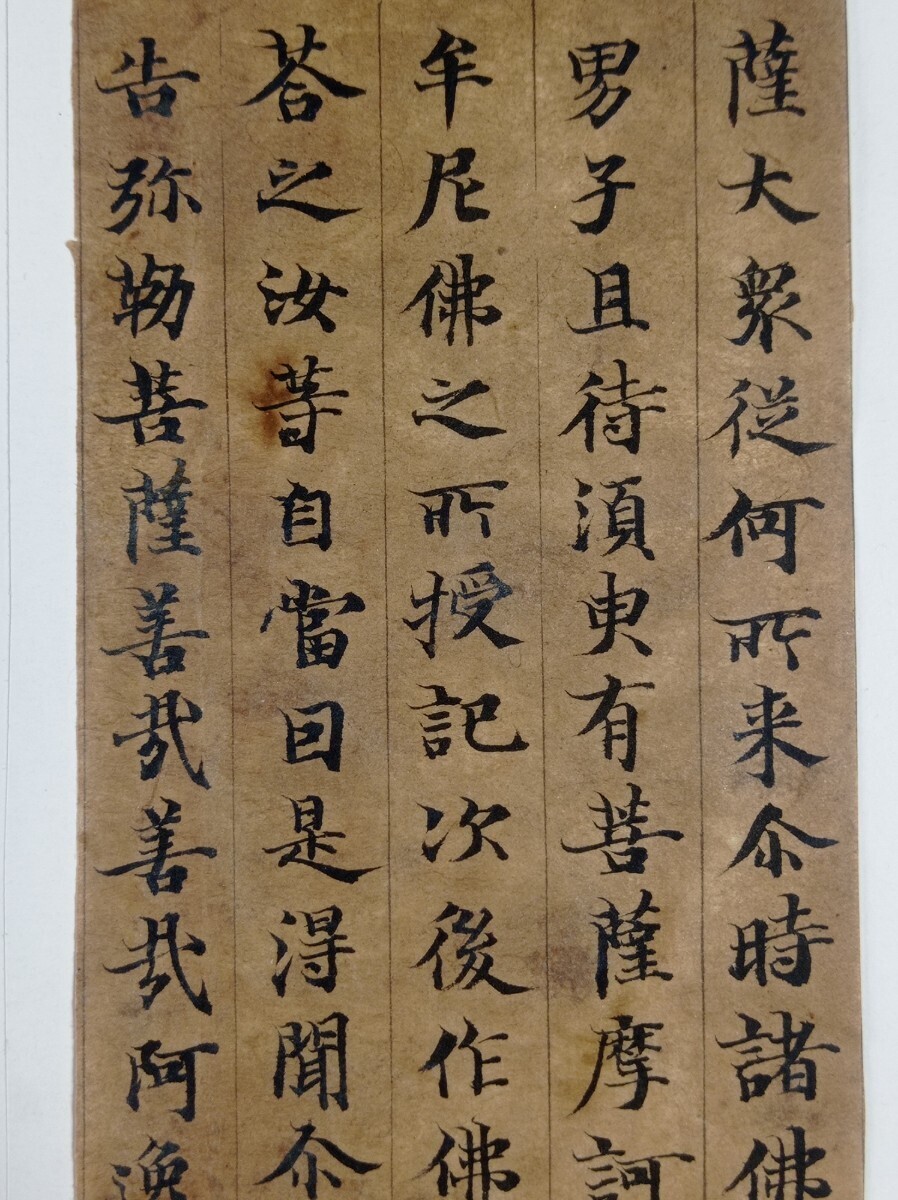 薩大衆従何所来尒時諸佛
男子且待須臾有菩薩摩訶
牟尼佛之所授記次後作佛
荅之汝等自當曰是得聞尒
告弥勒菩薩善哉善哉阿逸